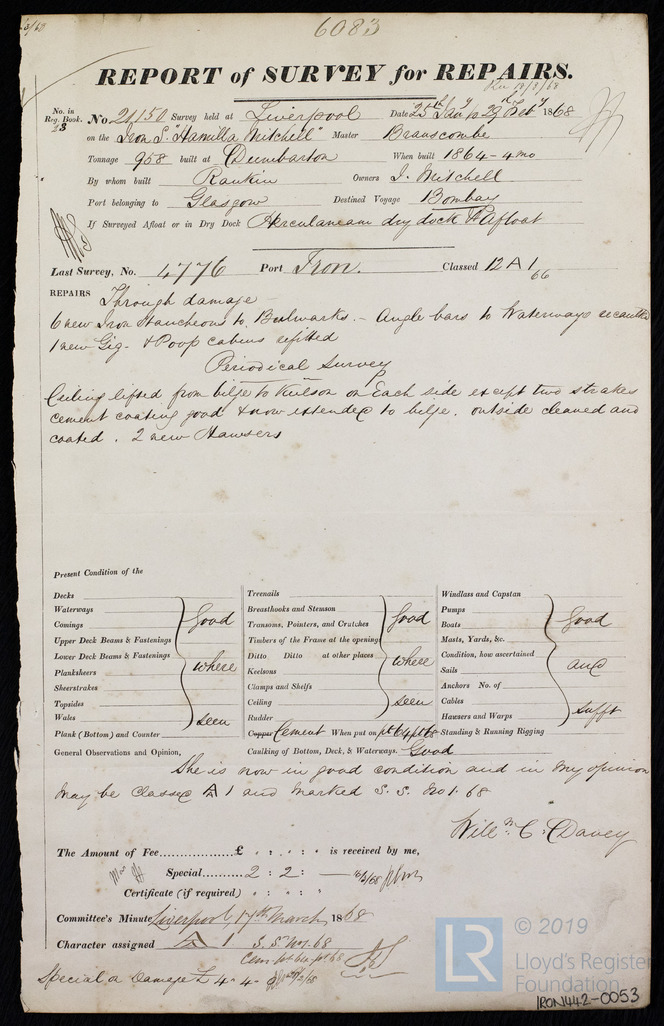 6083
REPORT of SURVEY for REPAIRS.
Rec 18/3/68
No. in Reg. Book. No. 21,150 Survey held at Liverpool Date 25th Jany to 29th Feby 1868
on the Iron S. "Hamilla Mitchell" Master Branscombe
Tonnage 958 built at Dumbarton When built 1864 - 4 mo
By whom built Rankin Owners J. Mitchell
Port belonging to Glasgow Destined Voyage Bombay
If Surveyed Afloat or in Dry Dock Herculaneam dry dock & Afloat
Last Survey, No. 4776 Port Iron. Classed 12 A 1 66
REPAIRS Through damage
6 new Iron Stancheons to Bulwarks. - Angle bars to Waterways recaulked
1 new Gig - & Poop cabins refitted
Periodical Survey
Ceiling lifted from bilge to Keelson on Each side except two strakes
cement coating good & now extended to bilge. outside cleaned and
coated. 2 new Hawsers
Present Condition of the
Decks
Waterways
Comings
Upper Deck Beams & Fastenings
Lower Deck Beams & Fastenings
Planksheers
Sheerstrakes
Topsides
Wales
Plank (Bottom) and Counter
Good where seen
Treenails
Breasthooks and Stemson
Transoms, Pointers, and Crutches
Timbers of the Frame at the opening
Ditto Ditto at other places
Keelsons
Clamps and Shelfs
Ceiling
Rudder
Good where seen
Copper Cement When put on pt 64 pt 68
Caulking of Bottom, Deck, & Waterways. Good
Windlass and Capstan
Pumps
Boats
Masts, Yards, &c.
Condition, how ascertained
Sails
Anchors No. of
Cables
Hawsers and Warps
Good and Sufft
Standing & Running Rigging
General Observations and Opinion,
She is now in good condition and in my opinion
may be classed A 1 and marked S. S. No 1. 68
Willm. C. Davey
The Amount of Fee £ : : is received by me,
Special 2 : 2 : — 16/3/68
Certificate (if required) : :
Committee's Minute Liverpool, 17th March 1868
Character assigned A 1 S. S. No 1. 68
Cem pt 64 pt 68
Special a Damage £ 4 - 4 -
LR
© 2019
Lloyd's Register
Foundation
IRON442-0053